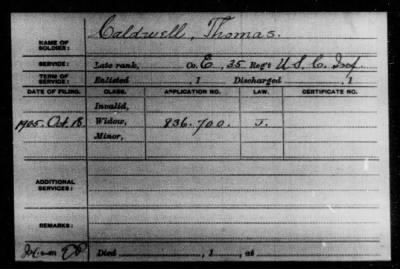 NAME OF SOLDIER: Caldwell, Thomas.
SERVICE: Late rank, Co. E, 35 Reg't U.S.C. Inf.
TERM OF SERVICE: Enlisted , 1 Discharged , 1
DATE OF FILING. CLASS. APPLICATION NO. LAW. CERTIFICATE NO.
Invalid,
1905. Oct. 18 Widow, 836.700. J.
Minor,
ADDITIONAL SERVICES:
REMARKS:
Died , 1 , at